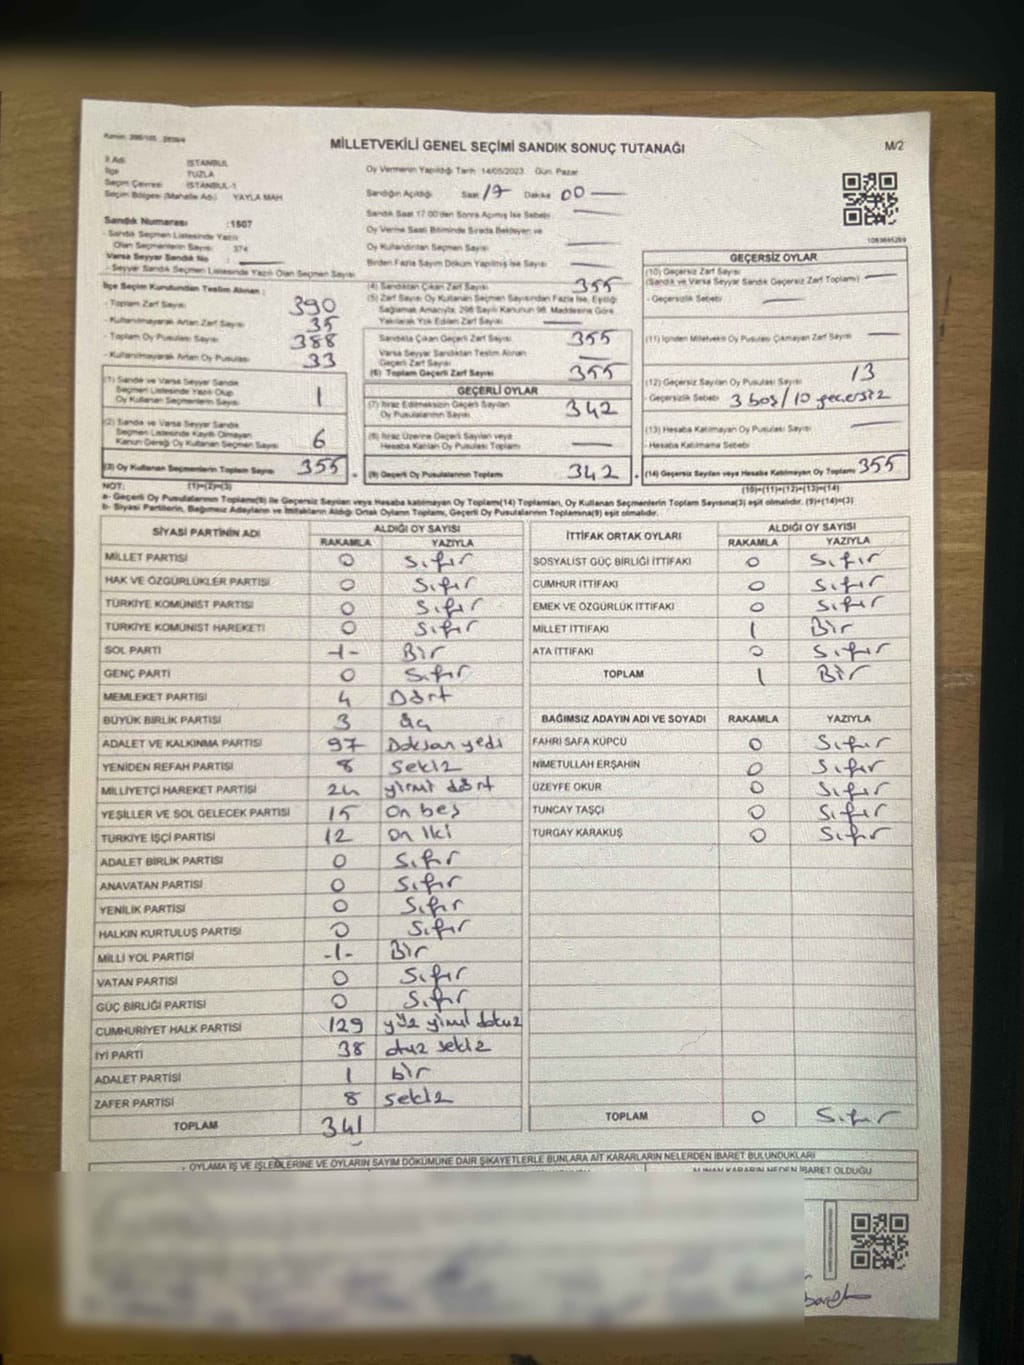 MİLLETVEKİLİ GENEL SEÇİMİ SANDIK SONUÇ TUTANAĞI
M/2
İl Adı : İSTANBUL
İlçe : TUZLA
Seçim Çevresi : İSTANBUL-1
Seçim Bölgesi (Mahalle Adı) YAYLA MAH
Oy Vermenin Yapıldığı Tarih 14/05/2023 Gün Pazar
Sandığın Açıldığı Saat 17 Dakika 00
Sandık Saat 17.00'den Sonra Açılmış İse Sebebi
Oy Verme Saati Bitiminde Sırada Bekleyen ve
Oy Kullandırılan Seçmen Sayısı
Birden Fazla Sayım Döküm Yapılmış İse Sayısı
Sandık Numarası :1507
- Sandık Seçmen Listesinde Yazılı
Olan Seçmenlerin Sayısı 374
Varsa Seyyar Sandık No
- Seyyar Sandık Seçmen Listesinde Yazılı Olan Seçmen Sayısı
İlçe Seçim Kurulundan Teslim Alınan :
- Toplam Zarf Sayısı 390
- Kullanılmayarak Artan Zarf Sayısı 35
- Toplam Oy Pusulası Sayısı 388
- Kullanılmayarak Artan Oy Pusulası 33
(1) Sandık ve Varsa Seyyar Sandık
Seçmen Listesinde Yazılı Olup
Oy Kullanan Seçmenlerin Sayısı 1
(2) Sandık ve Varsa Seyyar Sandık
Seçmen Listesinde Kayıtlı Olmayan
Kanun Gereği Oy Kullanan Seçmen Sayısı 6
(3) Oy Kullanan Seçmenlerin Toplam Sayısı 355
(4) Sandıktan Çıkan Zarf Sayısı 355
(5) Zarf Sayısı Oy Kullanan Seçmen Sayısından Fazla İse, Eşitliği
Sağlamak Amacıyla, 298 Sayılı Kanunun 98. Maddesine Göre
Yakılarak Yok Edilen Zarf Sayısı
Sandıkta Çıkan Geçerli Zarf Sayısı 355
Varsa Seyyar Sandıktan Teslim Alınan
Geçerli Zarf Sayısı
(6) Toplam Geçerli Zarf Sayısı 355
GEÇERLİ OYLAR
(7) İtiraz Edilmeksizin Geçerli Sayılan
Oy Pusulalarının Sayısı 342
(8) İtiraz Üzerine Geçerli Sayılan veya
Hesaba Katılan Oy Pusulası Toplamı
(9) Geçerli Oy Pusulalarının Toplamı 342
GEÇERSİZ OYLAR
(10) Geçersiz Zarf Sayısı
(Sandık ve Varsa Seyyar Sandık Geçersiz Zarf Toplamı)
- Geçersizlik Sebebi
(11) İçinden Milletvekili Oy Pusulası Çıkmayan Zarf Sayısı
(12) Geçersiz Sayılan Oy Pusulası Sayısı 13
- Geçersizlik Sebebi 3 boş/10 geçersiz
(13) Hesaba Katılmayan Oy Pusulası Sayısı
- Hesaba Katılmama Sebebi
(14) Geçersiz Sayılan veya Hesaba Katılmayan Oy Toplamı 355
NOT: (1)+(2)=(3) (10)+(11)+(12)+(13)=(14)
a- Geçerli Oy Pusulalarının Toplamı(9) ile Geçersiz Sayılan veya Hesaba katılmayan Oy Toplamı(14) Toplamları, Oy Kullanan Seçmenlerin Toplam Sayısına(3) eşit olmalıdır. (9)+(14)=(3)
b- Siyasi Partilerin, Bağımsız Adayların ve İttifakların Aldığı Ortak Oyların Toplamı, Geçerli Oy Pusulalarının Toplamına(9) eşit olmalıdır.
SİYASİ PARTİNİN ADI ALDIĞI OY SAYISI
RAKAMLA YAZIYLA
MİLLET PARTİSİ 0 Sıfır
HAK VE ÖZGÜRLÜKLER PARTİSİ 0 Sıfır
TÜRKİYE KOMÜNİST PARTİSİ 0 Sıfır
TÜRKİYE KOMÜNİST HAREKETİ 0 Sıfır
SOL PARTİ -1- Bir
GENÇ PARTİ 0 Sıfır
MEMLEKET PARTİSİ 4 Dört
BÜYÜK BİRLİK PARTİSİ 3 üç
ADALET VE KALKINMA PARTİSİ 97 Doksan yedi
YENİDEN REFAH PARTİSİ 8 sekiz
MİLLİYETÇİ HAREKET PARTİSİ 24 yirmi dört
YEŞİLLER VE SOL GELECEK PARTİSİ 15 on beş
TÜRKİYE İŞÇİ PARTİSİ 12 on iki
ADALET BİRLİK PARTİSİ 0 Sıfır
ANAVATAN PARTİSİ 0 Sıfır
YENİLİK PARTİSİ 0 Sıfır
HALKIN KURTULUŞ PARTİSİ 0 Sıfır
MİLLİ YOL PARTİSİ -1- Bir
VATAN PARTİSİ 0 Sıfır
GÜÇ BİRLİĞİ PARTİSİ 0 Sıfır
CUMHURİYET HALK PARTİSİ 129 yüz yirmi dokuz
İYİ PARTİ 38 otuz sekiz
ADALET PARTİSİ 1 bir
ZAFER PARTİSİ 8 sekiz
TOPLAM 341
İTTİFAK ORTAK OYLARI ALDIĞI OY SAYISI
RAKAMLA YAZIYLA
SOSYALİST GÜÇ BİRLİĞİ İTTİFAKI 0 Sıfır
CUMHUR İTTİFAKI 0 Sıfır
EMEK VE ÖZGÜRLÜK İTTİFAKI 0 Sıfır
MİLLET İTTİFAKI 1 Bir
ATA İTTİFAKI 0 Sıfır
TOPLAM 1 Bir
BAĞIMSIZ ADAYIN ADI VE SOYADI RAKAMLA YAZIYLA
FAHRİ SAFA KÜPCÜ 0 Sıfır
NİMETULLAH ERŞAHİN 0 Sıfır
ÜZEYFE OKUR 0 Sıfır
TUNCAY TAŞÇI 0 Sıfır
TURGAY KARAKUŞ 0 Sıfır
TOPLAM 0 Sıfır
- OYLAMA İŞ VE İŞLEMLERİNE VE OYLARIN SAYIM DÖKÜMÜNE DAİR ŞİKAYETLERLE BUNLARA AİT KARARLARIN NELERDEN İBARET BULUNDUKLARI
ALINAN KARARIN NEDEN İBARET OLDUĞU